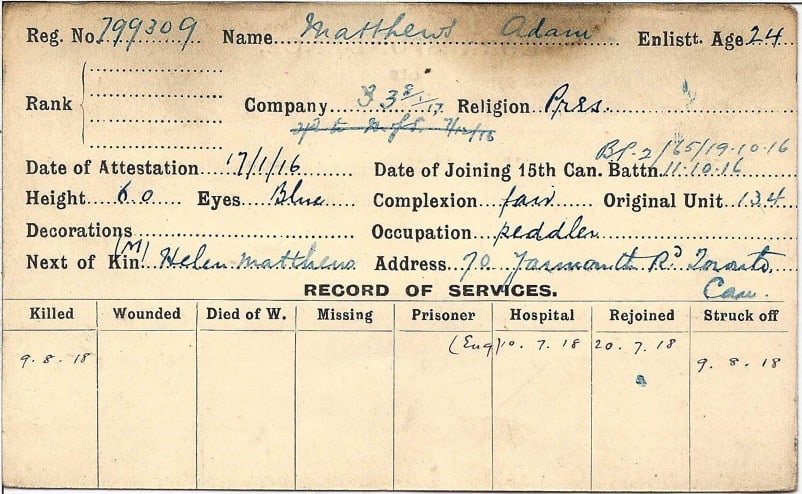 Reg. No. 799309 Name Matthews Adam Enlistt. Age 24
Rank Company 3 Religion Pres.
BP-2/165/19-10-16
Date of Attestation 17/1/16 Date of Joining 15th Can. Battn. 11-10-16
Height 6.0 Eyes Blue Complexion fair Original Unit 134
Decorations Occupation peddler
Next of Kin (M) Helen Matthews Address 70 Yarmouth Rd Toronto
Can.
RECORD OF SERVICES.
Killed Wounded Died of W. Missing Prisoner Hospital Rejoined Struck off
(Eng) 10. 7. 18 20. 7. 18
9. 8. 18 9. 8. 18